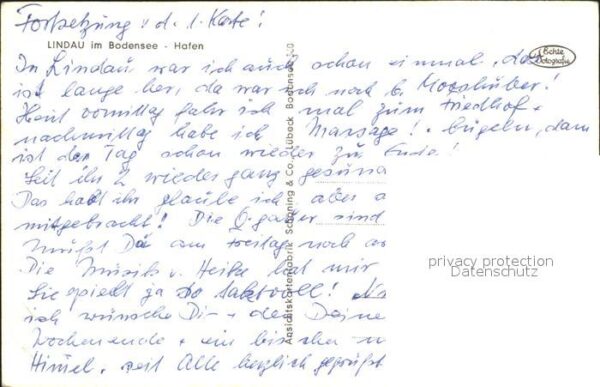 Fortsetzung v. d. 1. Karte!
LINDAU im Bodensee - Hafen
Echte Fotografie
In Lindau war ich auch schon einmal, das
ist lange her, da war ich noch b. Mooshuber!
Heut vormittag fahr ich mal zum Friedhof,
nachmittag habe ich Massage! + bügeln, dann
ist der Tag schon wieder zu Ende!
Seid ihr 2 wieder ganz gesund
Das habt ihr glaube ich aber
mitgebracht! Die sind
mußt Du am Freitag noch
Die Musik v. Heike hat mir
Sie spielt ja so taktvoll!
ich wünsche Dir + den Deinen
Wochenende + ein bischen
Himmel. seit Alle herzlich gegrüßt
Ansichtskartenfabrik Schöning & Co., Lübeck
Bodensee
privacy protection
Datenschutz